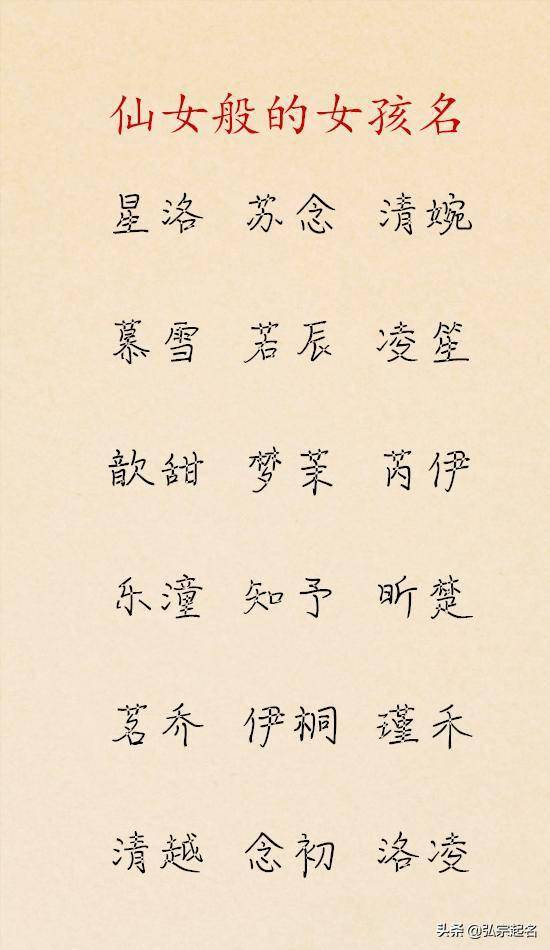 仙女般的女孩名
星洛 苏念 清婉
慕雪 若辰 凌笙
歆甜 梦茉 芮伊
乐潼 知予 昕楚
茗乔 伊桐 瑾禾
清越 念初 洛凌
头条 @弘宗起名